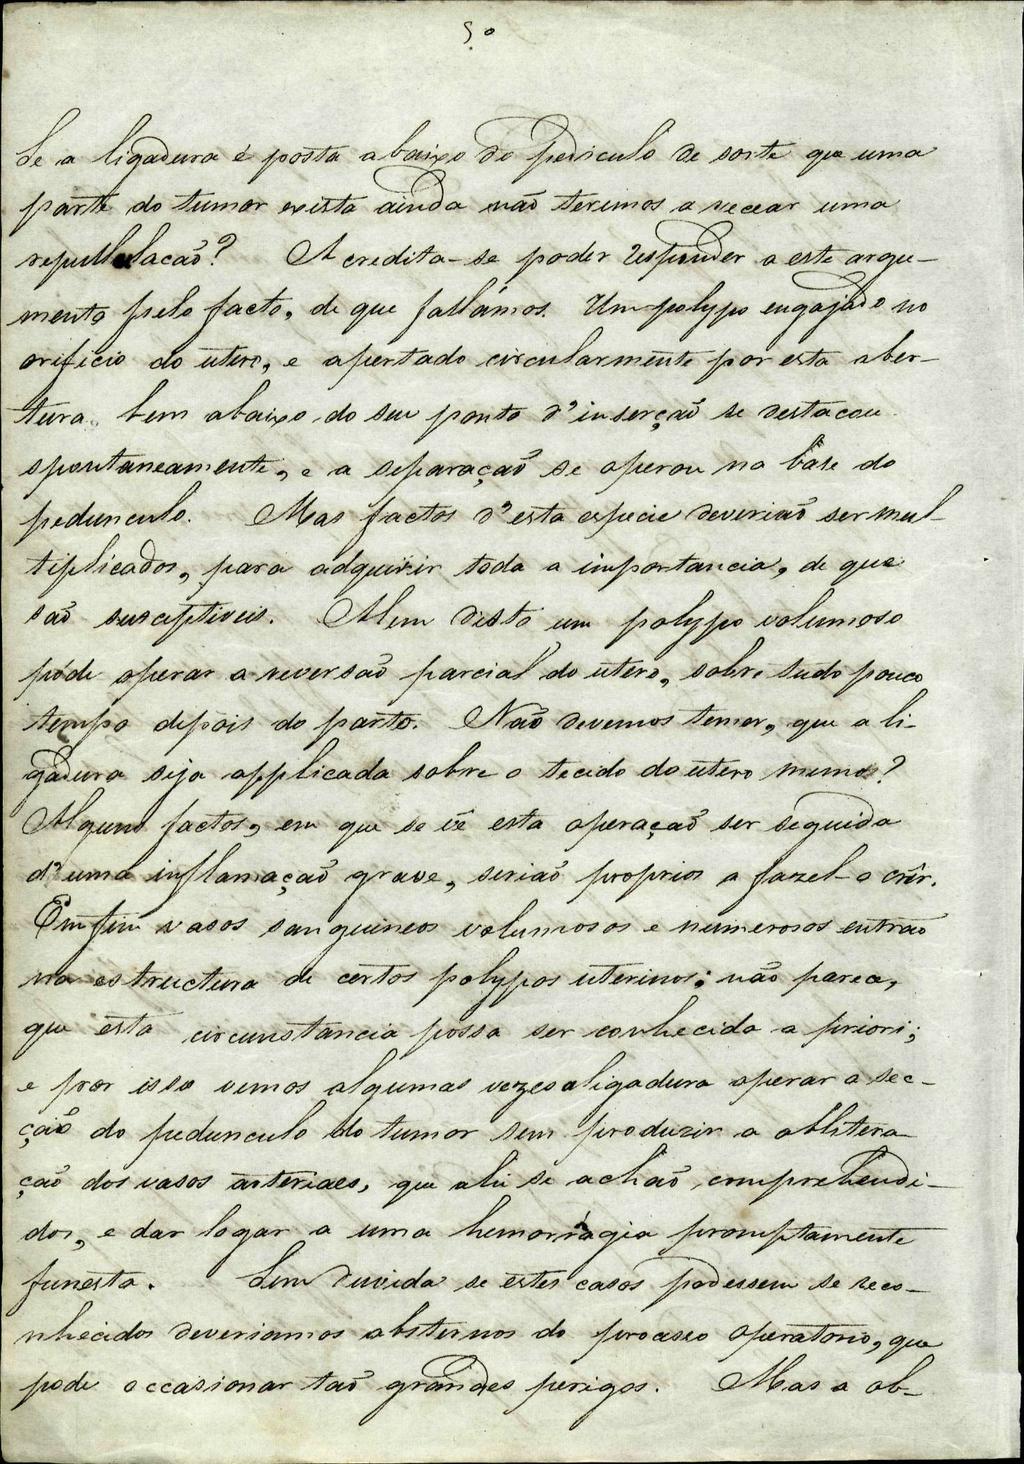 50
Se a ligadura é posta abaixo do pediculo de sorte que uma
parte do tumor exista ainda não teriamos a recear uma
repullulacão? Acredita-se poder responder a este argu-
mento pelo facto, de que fallámos. Um polypo engajado no
orificio do utero, e apertado circularmente por esta aber-
tura, bem abaixo do seu ponto d'inserção se destacou
spontaneamente, e a separação se operou na base do
pedunculo. Mas factos d'esta especie deverião ser mul-
tiplicados, para adquirir toda a importancia, de que
são susceptiveis. Alem disto um polypo volumoso
póde operar a reversão parcial do utero, sobre tudo pouco
tempo depois do parto. Não devemos temer, que a li-
gadura seja applicada sobre o tecido do utero mesmo?
Alguns factos, em que se vê esta operação ser seguida
d'uma inflamação grave, serião proprios a fazel-o crêr.
Emfim vasos sanguineos volumosos e numerosos entrão
na estructura de certos polypos uterinos; não parece,
que esta circumstancia possa ser conhecida a priori;
e por isso vemos algumas vezes a ligadura operar a sec-
ção do pedunculo do tumor sem produzir a oblitera
ção dos vasos arteriaes, que alli se achão comprehendi-
dos, e dar logar a uma hemorrágia promptamente
funesta. Sem duvida se estes casos podessem se reco-
nhecidos deveriamos absternos do processo operatorio, que
pode occasionar tão grandes perigos. Mas a ob-